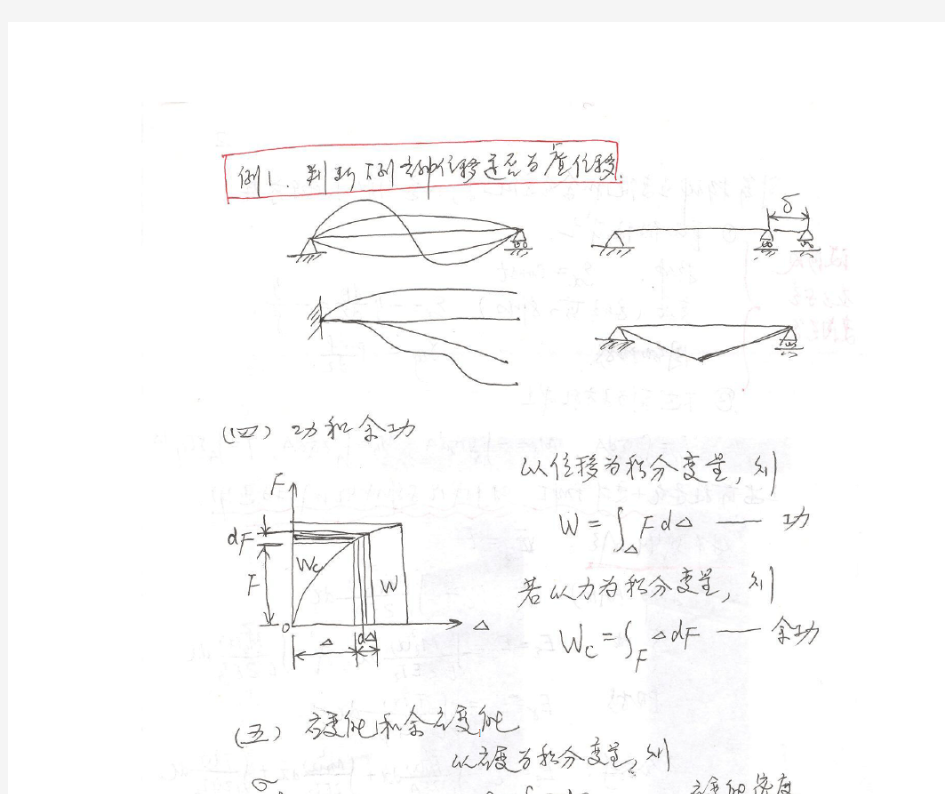 例1. 判断下列各种位移是否为虚位移.
δ
(四) 功和余功
以位移为积分变量, 则
W = ∫_Δ F dΔ —— 功
若以力为积分变量, 则
W_C = ∫_F Δ dF —— 余功
F
dF
F
W_C
W
O
Δ
dΔ
Δ
(五) 应变能和余应变能
以应变为积分变量, 则
σ
应变能密度